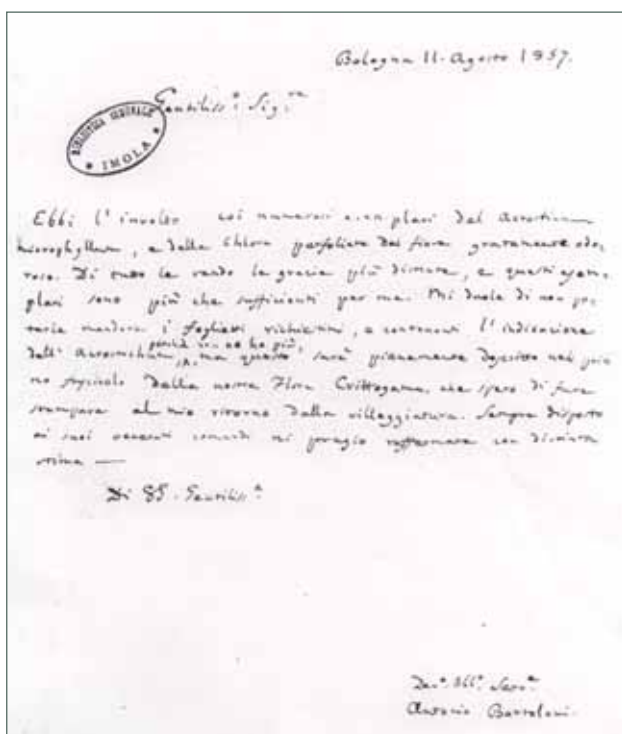 Bologna 11. Agosto 1857.
Gentiliss.ª Sig.ra
BIBLIOTECA COMUNALE
* IMOLA *
Ebbi l'involto coi numerosi esemplari del Acrosticum
microphyllum, e della Chlora perfoliata dal fiore gratamente odo-
roso. Di tutto le rendo le grazie più distinte, e questi esem-
plari sono più che sufficienti per me. Mi duole di non po-
terle mandare i foglietti richiestimi, e contenenti l'indicazione
perchè non ne ho più,
dell' Acrostichum, ma questo sarà pienamente descritto nel pri-
mo fascicolo della nostra Flora Crittogama, che spero di fare
stampare al mio ritorno dalla villeggiatura. Sempre disposto
ai suoi venerati comandi mi pregio raffermarmi con distinta
stima —
Di Gentiliss.ª
Dev.º Obbl.º Serv.e
Antonio Bertoloni